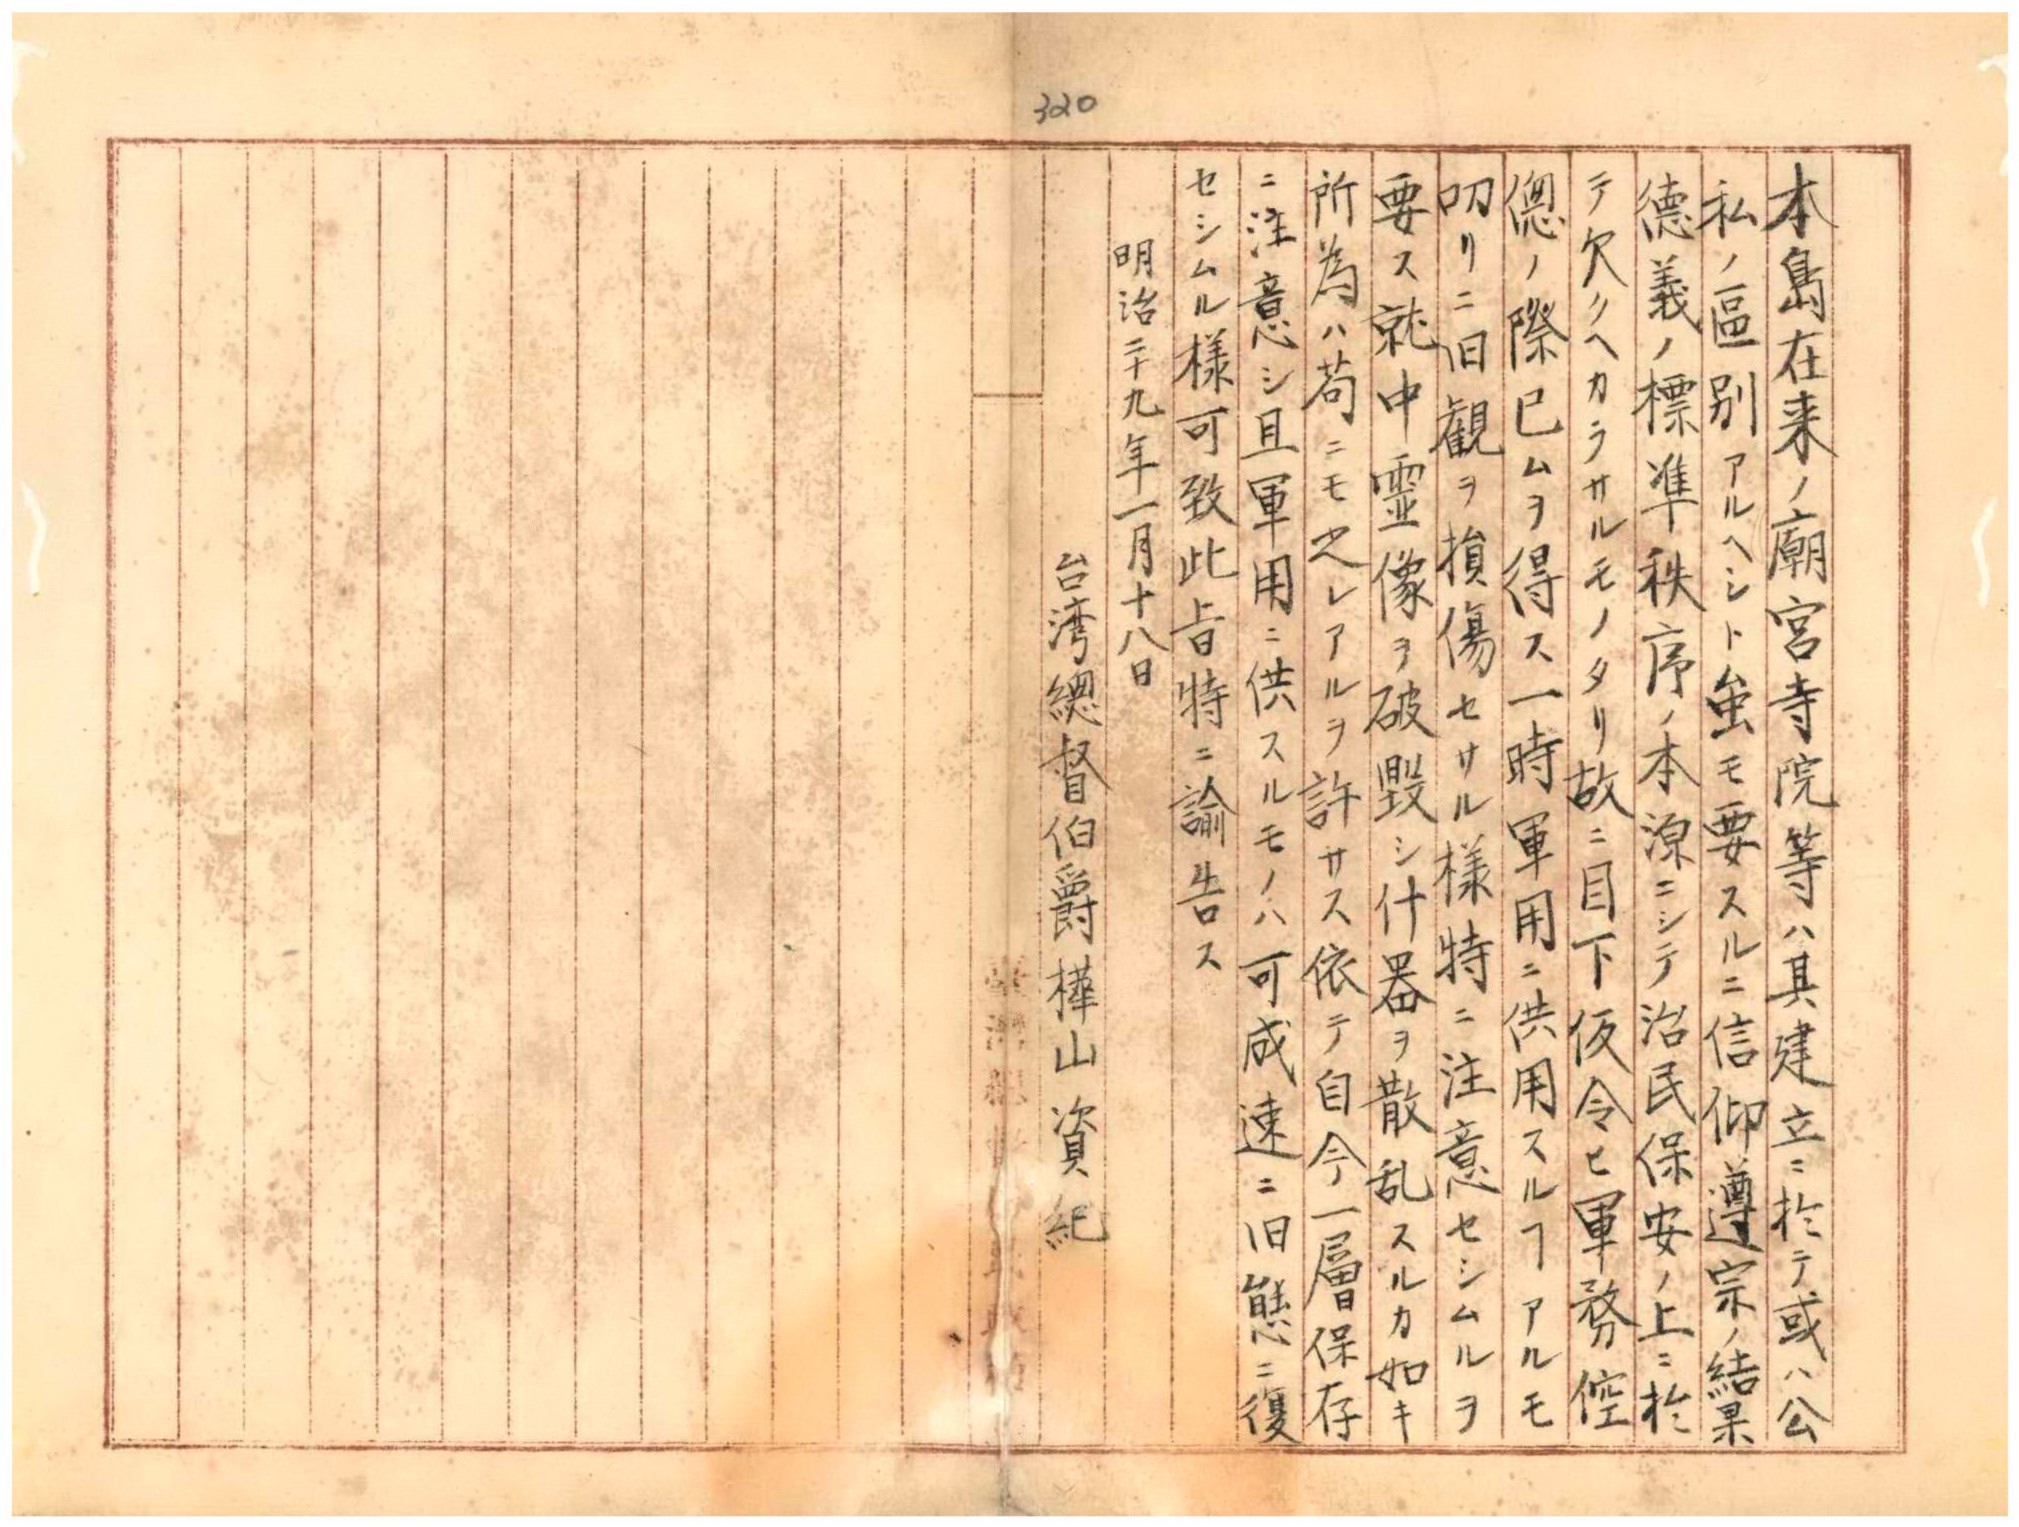 320
本島在来ノ廟宮寺院等ハ其建立ニ於テ或ハ公
私ノ區別アルヘシト虽モ要スルニ信仰遵宗ノ結果
德義ノ標準秩序ノ本源ニシテ治民保安ノ上ニ於
テ欠クヘカラサルモノタリ故ニ目下仮令ヒ軍務倥
偬ノ際已ムヲ得ス一時軍用ニ供用スルヿアルモ
叨リニ旧観ヲ損傷セサル様特ニ注意セシムルヲ
要ス就中霊像ヲ破毀シ什器ヲ散乱スルカ如キ
所為ハ苟ニモ之レアルヲ許サス依テ自今一層保存
ニ注意シ且軍用ニ供スルモノハ可成速ニ旧態ニ復
セシムル様可致此旨特ニ諭告ス
明治二十九年一月十八日
台湾總督伯爵樺山資紀